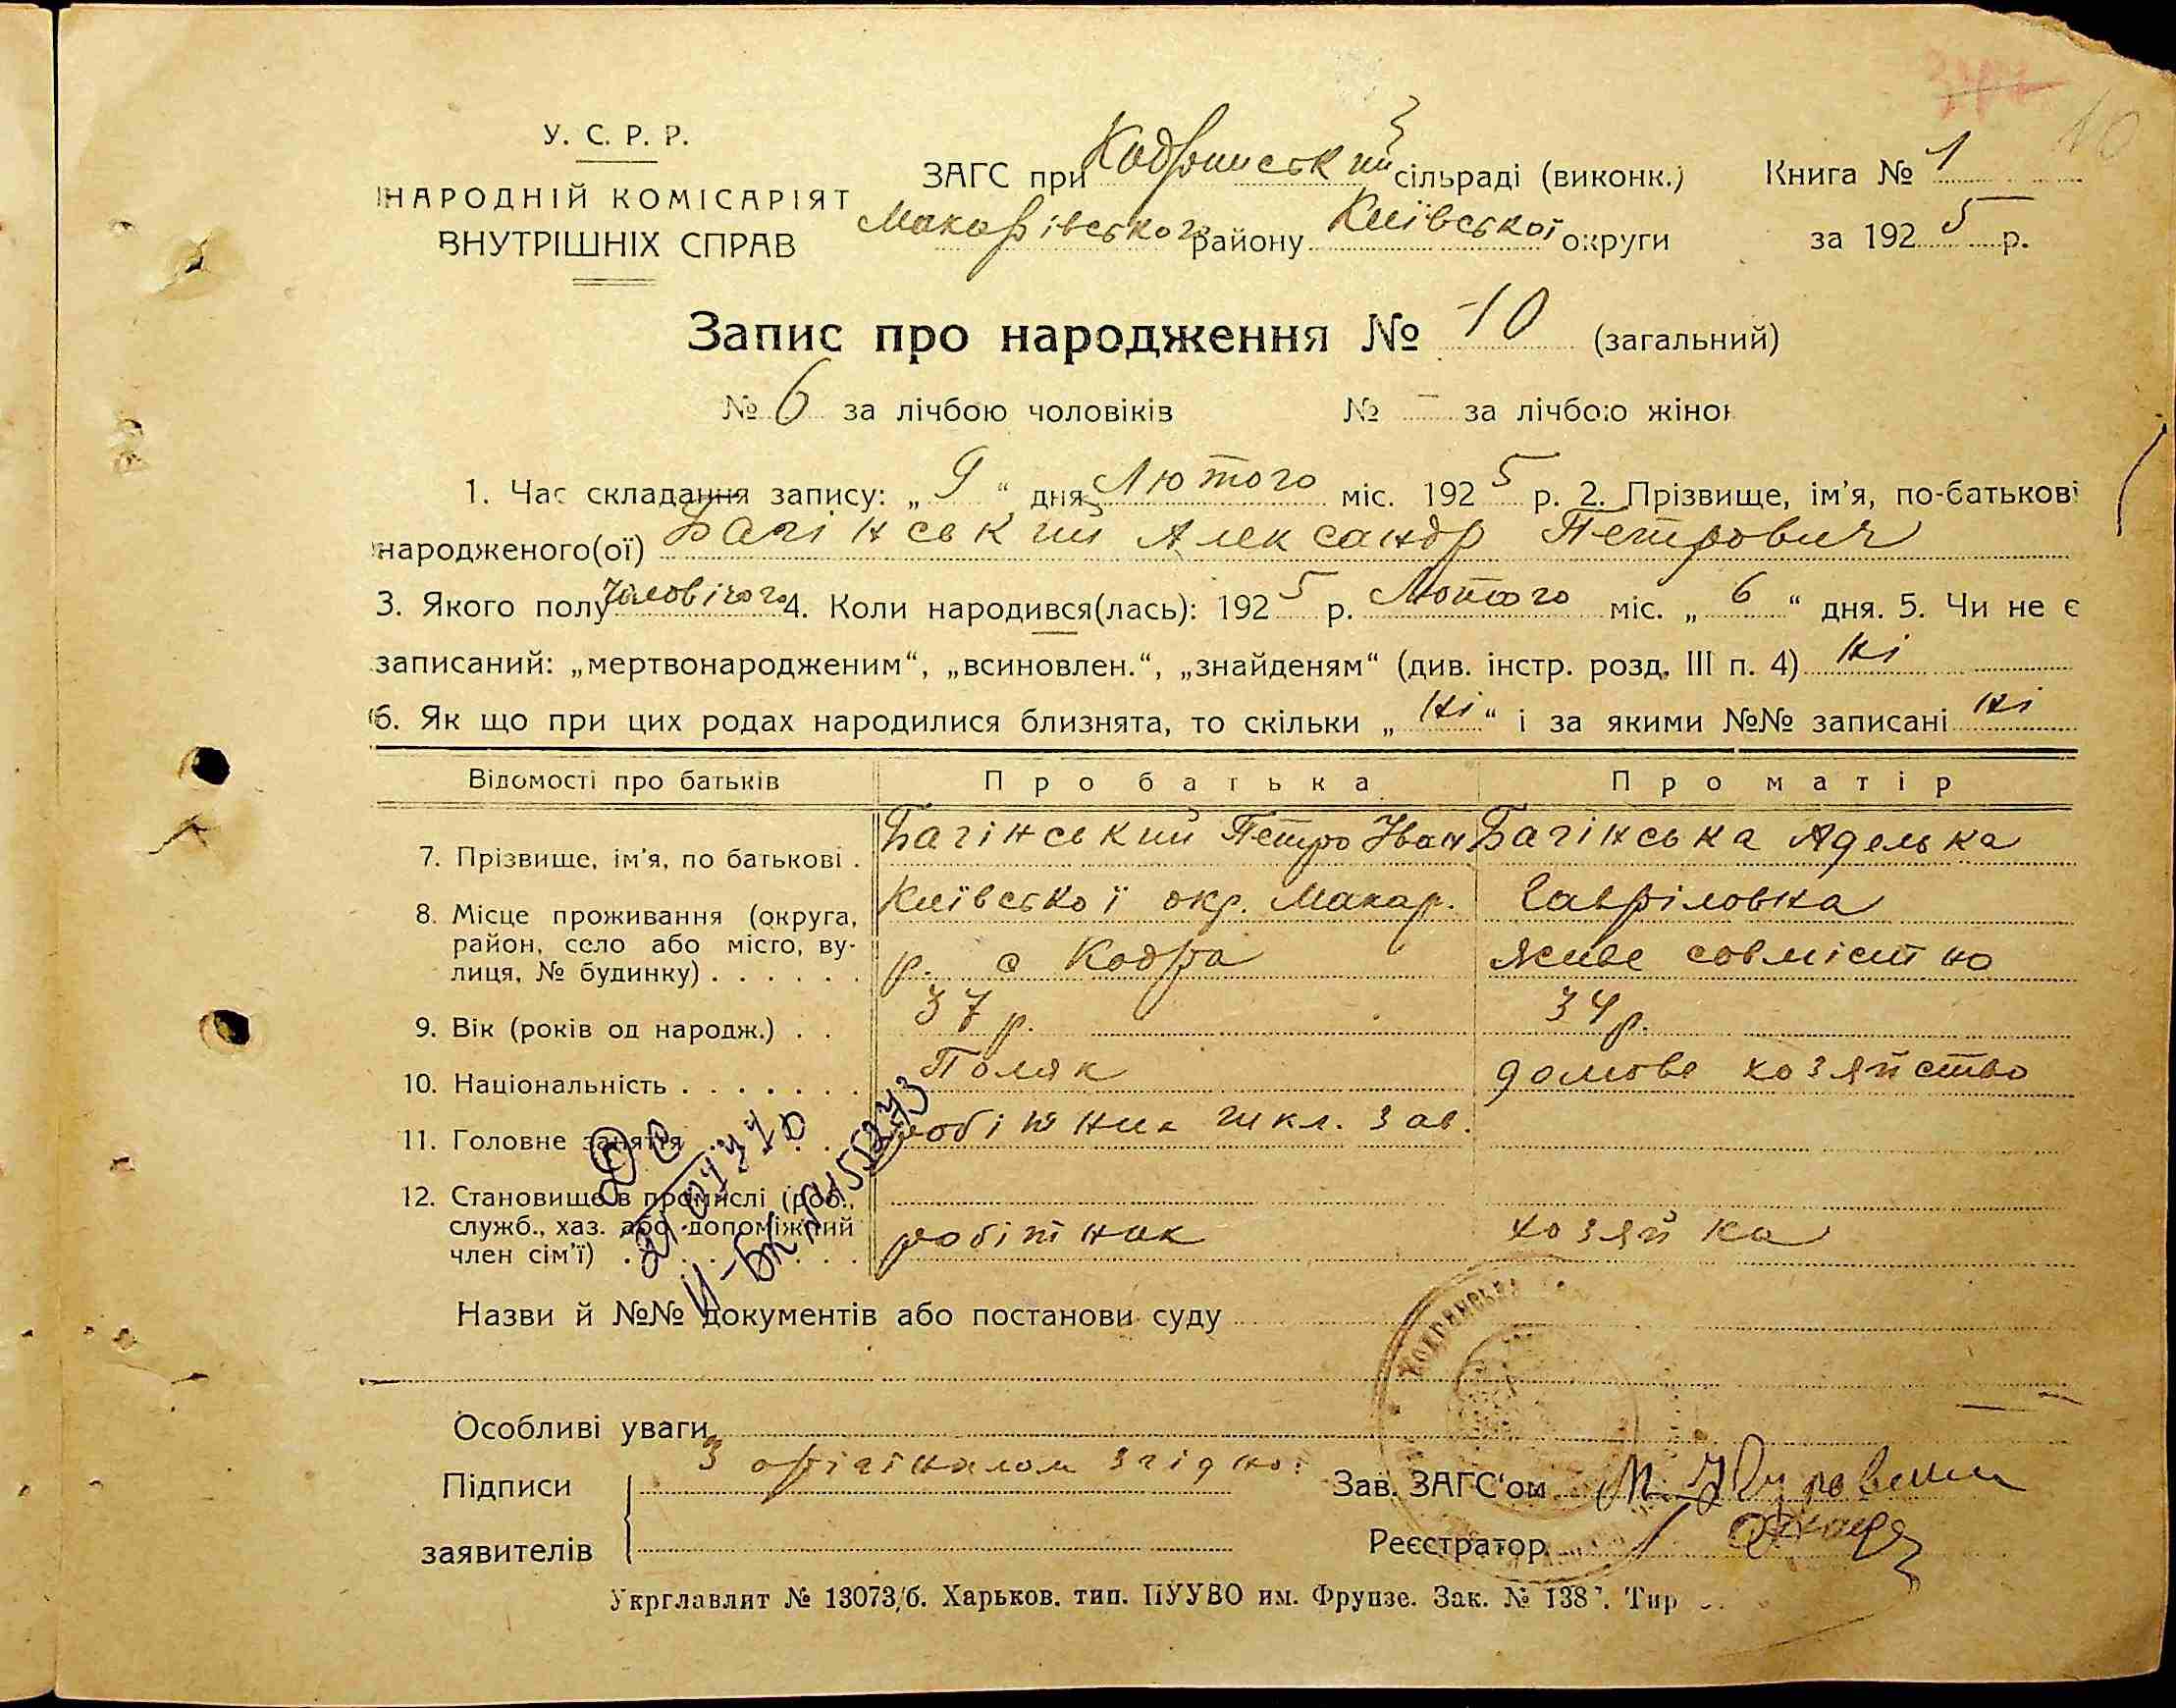 10
У. С. Р. Р.
НАРОДНІЙ КОМІСАРІЯТ
ВНУТРІШНІХ СПРАВ
ЗАГС при Кодринський сільраді (виконк.) Книга № 1
Макарівського району Київської округи за 1925 р.
Запис про народження № 10 (загальний)
№ 6 за лічбою чоловіків № – за лічбою жінок
1. Час складання запису: „9“ дня Лютого міс. 1925 р. 2. Прізвище, ім'я, по-батькові
народженого(ої) Багінський Александр Петрович
3. Якого полу Чоловічого 4. Коли народився(лась): 1925 р. Лютого міс. „6“ дня. 5. Чи не є
записаний: „мертвонародженим“, „всиновлен.“, „знайденям“ (див. інстр. розд. III п. 4) Ні
6. Як що при цих родах народилися близнята, то скільки „Ні“ і за якими №№ записані Ні
Відомості про батьків Про батька Про матір
7. Прізвище, ім'я, по батькові . Багінський Петро Іван Багінська Аделька
Гавріловна
8. Місце проживання (округа, район, село або місто, вулиця, № будинку) . . . . . . Київської окр. Макар.
р. с Кодра живе совмістно
9. Вік (років од народж.) . . 37 р. 34 р.
10. Національність . . . . . . . Поляк домове хозяйство
11. Головне заняття робітник шкл. зав.
12. Становище в промислі (роб., служб., хаз. або допоміжний член сім'ї) . . . робітник хозяйка
Назви й №№ документів або постанови суду
Кодринська
Особливі уваги
З орігіналом згідно:
Підписи
заявителів
Зав. ЗАГС'ом
Реєстратор
Укрглавлит № 13073/б. Харьков. тип. ПУУВО им. Фрунзе. Зак. № 138 . Тир